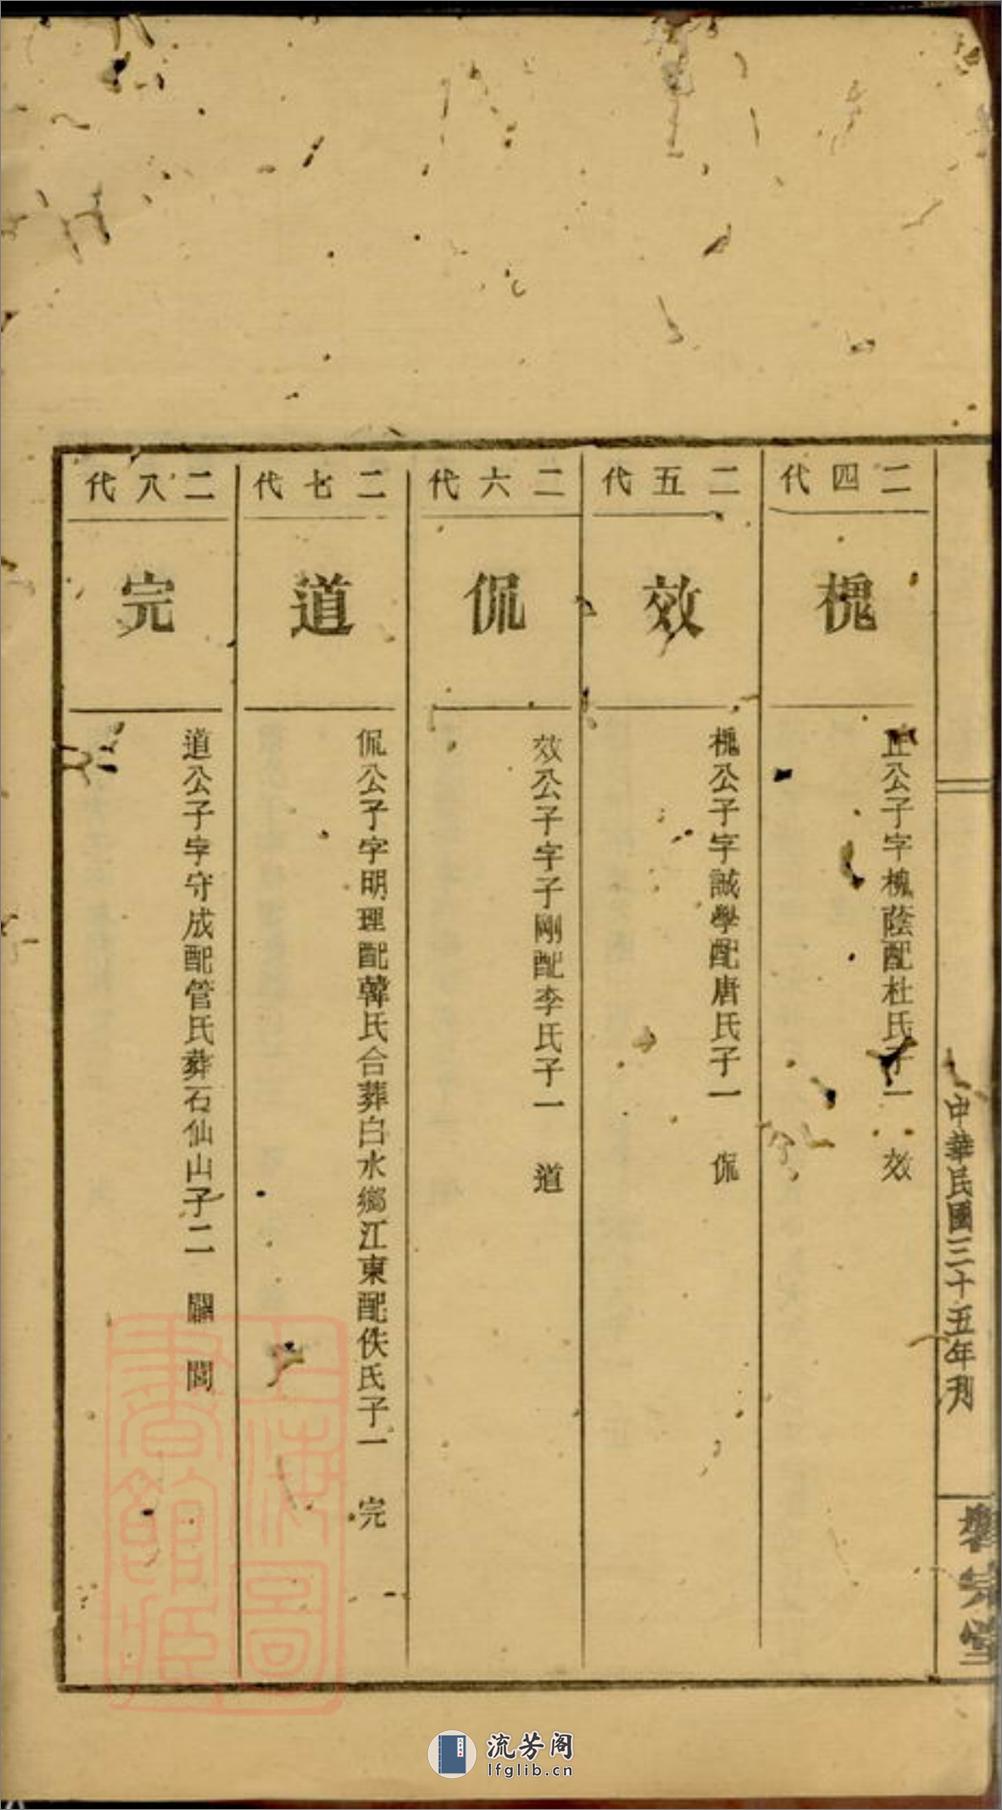 中華民國三十五年刊
二四代
槐
公子字槐蔭配杜氏子一 效
二五代
效
槐公子字誠學配唐氏子一 侃
二六代
侃
效公子字子剛配李氏子一 道
二七代
道
侃公子字明理配韓氏合葬白水鄉江東配佚氏子一 完
二八代
完
道公子字守成配管氏葬石仙山子二 閣
上海圖書館藏
流芳阁
lfglib.cn